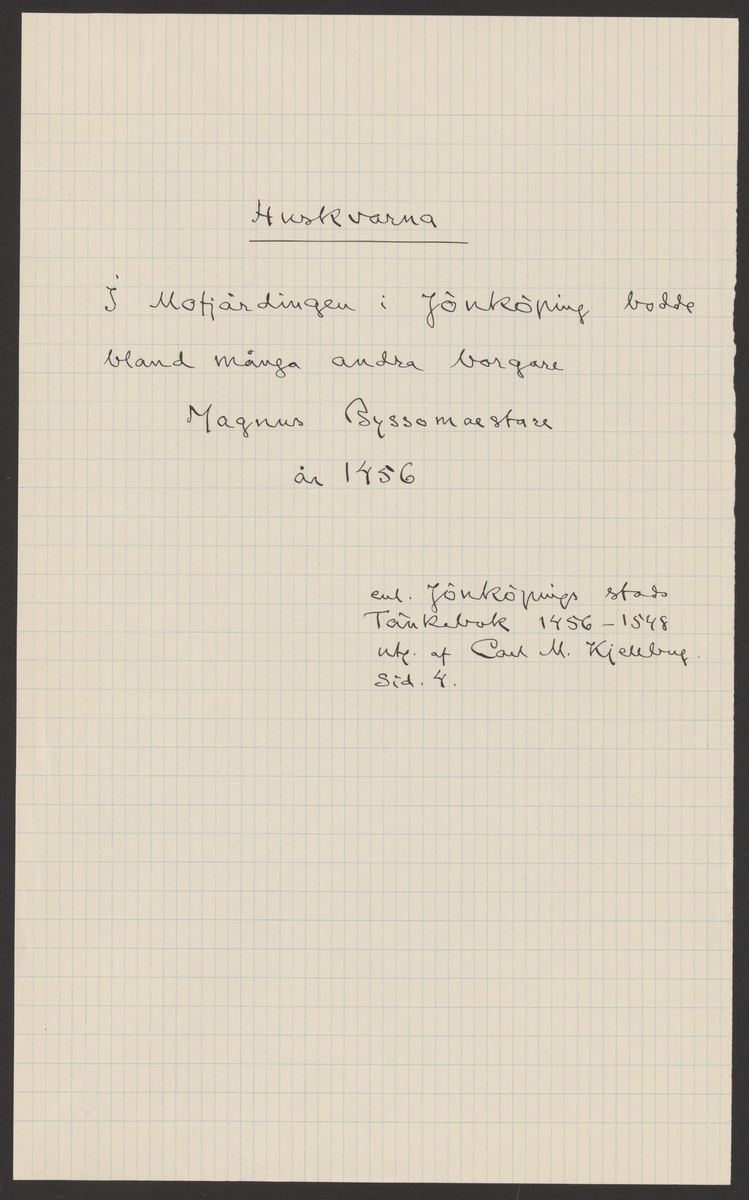 Huskvarna
I Mofjärdingen i Jönköping bodde
bland många andra borgare
Magnus Byssomaestare
år 1456
enl. Jönköpings stads
Tänkebok 1456-1548
utg. af Carl M. Kjellberg.
Sid. 4.